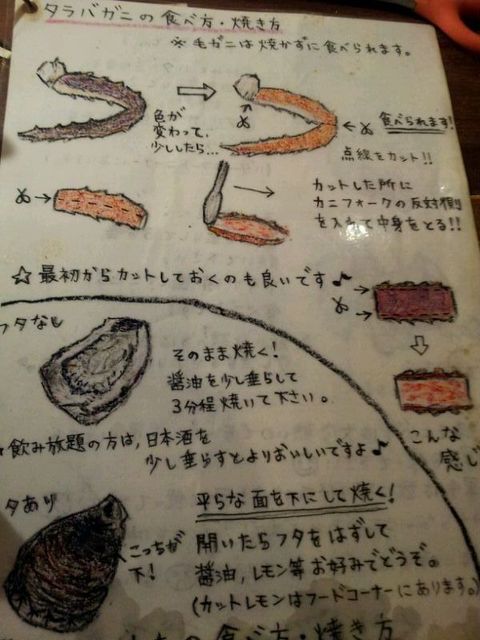 タラバガニの食べ方・焼き方
※毛ガニは焼かずに食べられます。
色が
変わって、
少ししたら…
食べられます!
点線をカット!!
カットした所に
カニフォークの反対側
を入れて中身をとる!!
☆最初からカットしておくのも良いです♪
フタなし
そのまま焼く!
醤油を少し垂らして
3分程焼いて下さい。
飲み放題の方は、日本酒を
少し垂らすとよりおいしいですよ♪
こんな
感じ
タあり
平らな面を下にして焼く!
こっちが
下!
開いたらフタをはずして
醤油、レモン等お好みでどうぞ。
(カットレモンはフードコーナーにあります。)
の食べ方・焼き方